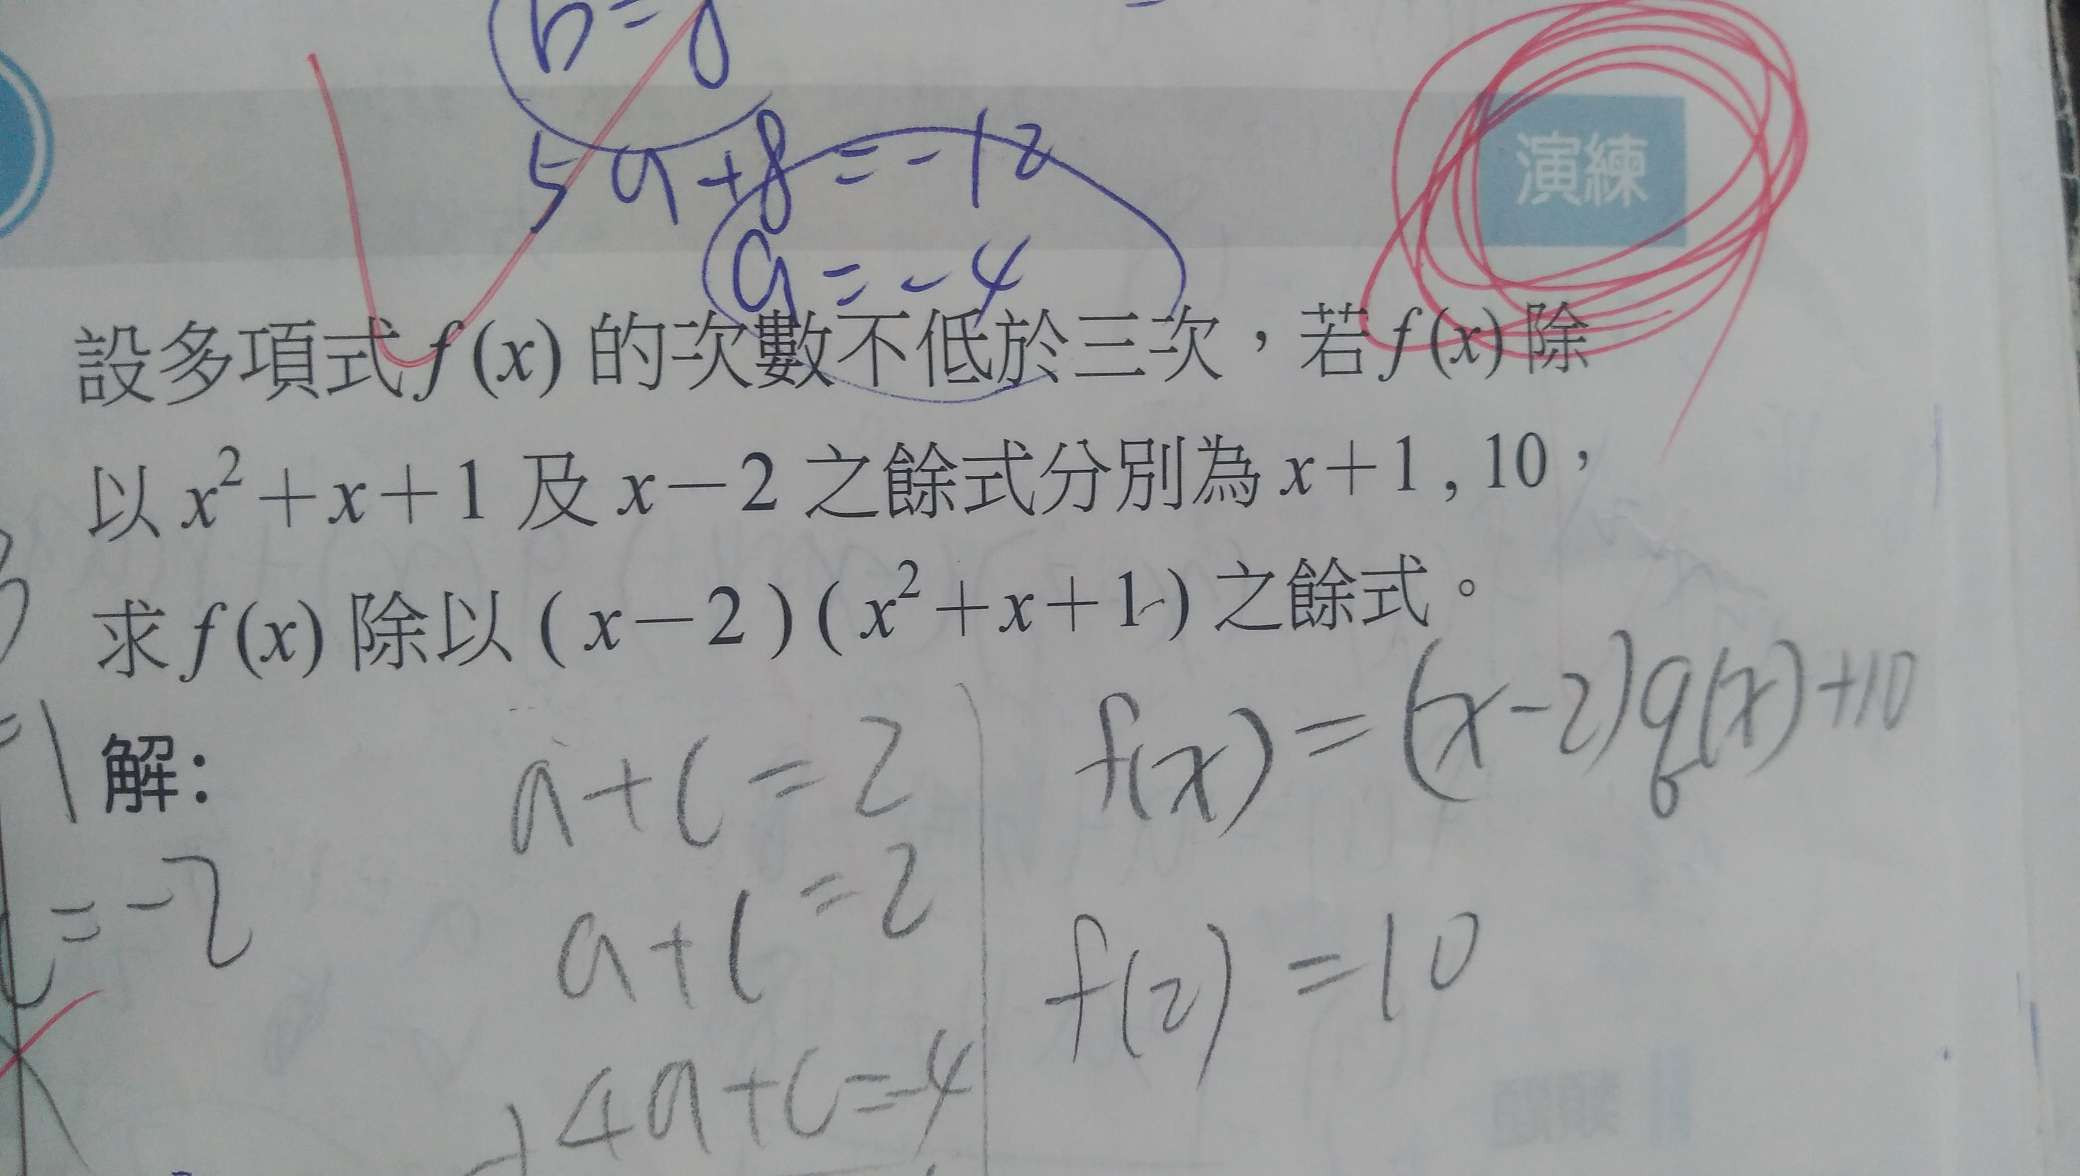 b=8
5a+8=-12
a=-4
演練
設多項式 f(x) 的次數不低於三次，若 f(x) 除
以 x²+x+1 及 x−2 之餘式分別為 x+1 , 10，
求 f(x) 除以 ( x−2 ) ( x²+x+1 ) 之餘式。
解：
a+c=2
a+c=2
4a+c=-4
f(x)=(x-2)q(x)+10
f(2)=10
=-2